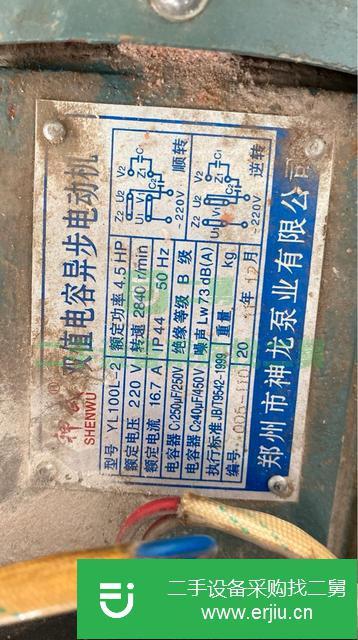 神武®
SHENWU
双值电容异步电动机
型号 YL100L-2 额定功率 4.5 HP
额定电压 220 V 转速 2840 r/min
额定电流 16.7 A IP 44 50 Hz
电容器 C₁250μF/250V 绝缘等级 B 级
电容器 C₂40μF/450V 噪声 Lw 73 dB(A)
执行标准 JB/T9542-1999 重量 kg
编号 20 年12月
V2 C1
Z1
U2 C2
Z2 U1
~220V
顺转
V2 C1
Z1
Z2 U2 C2
U1
~220V
逆转
郑州市神龙泵业有限公司
二手设备采购找二舅
www.erjiu.cn